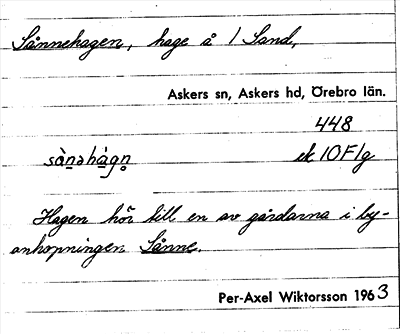 Sånnehagen, hage å 1 Sand,
Askers sn, Askers hd, Örebro län.
448
sȧ̀n̥əhȧgn̥ ek 10F1g
Hagen hör till en av gårdarna i by-
anhopningen Sånne.
Per-Axel Wiktorsson 1963